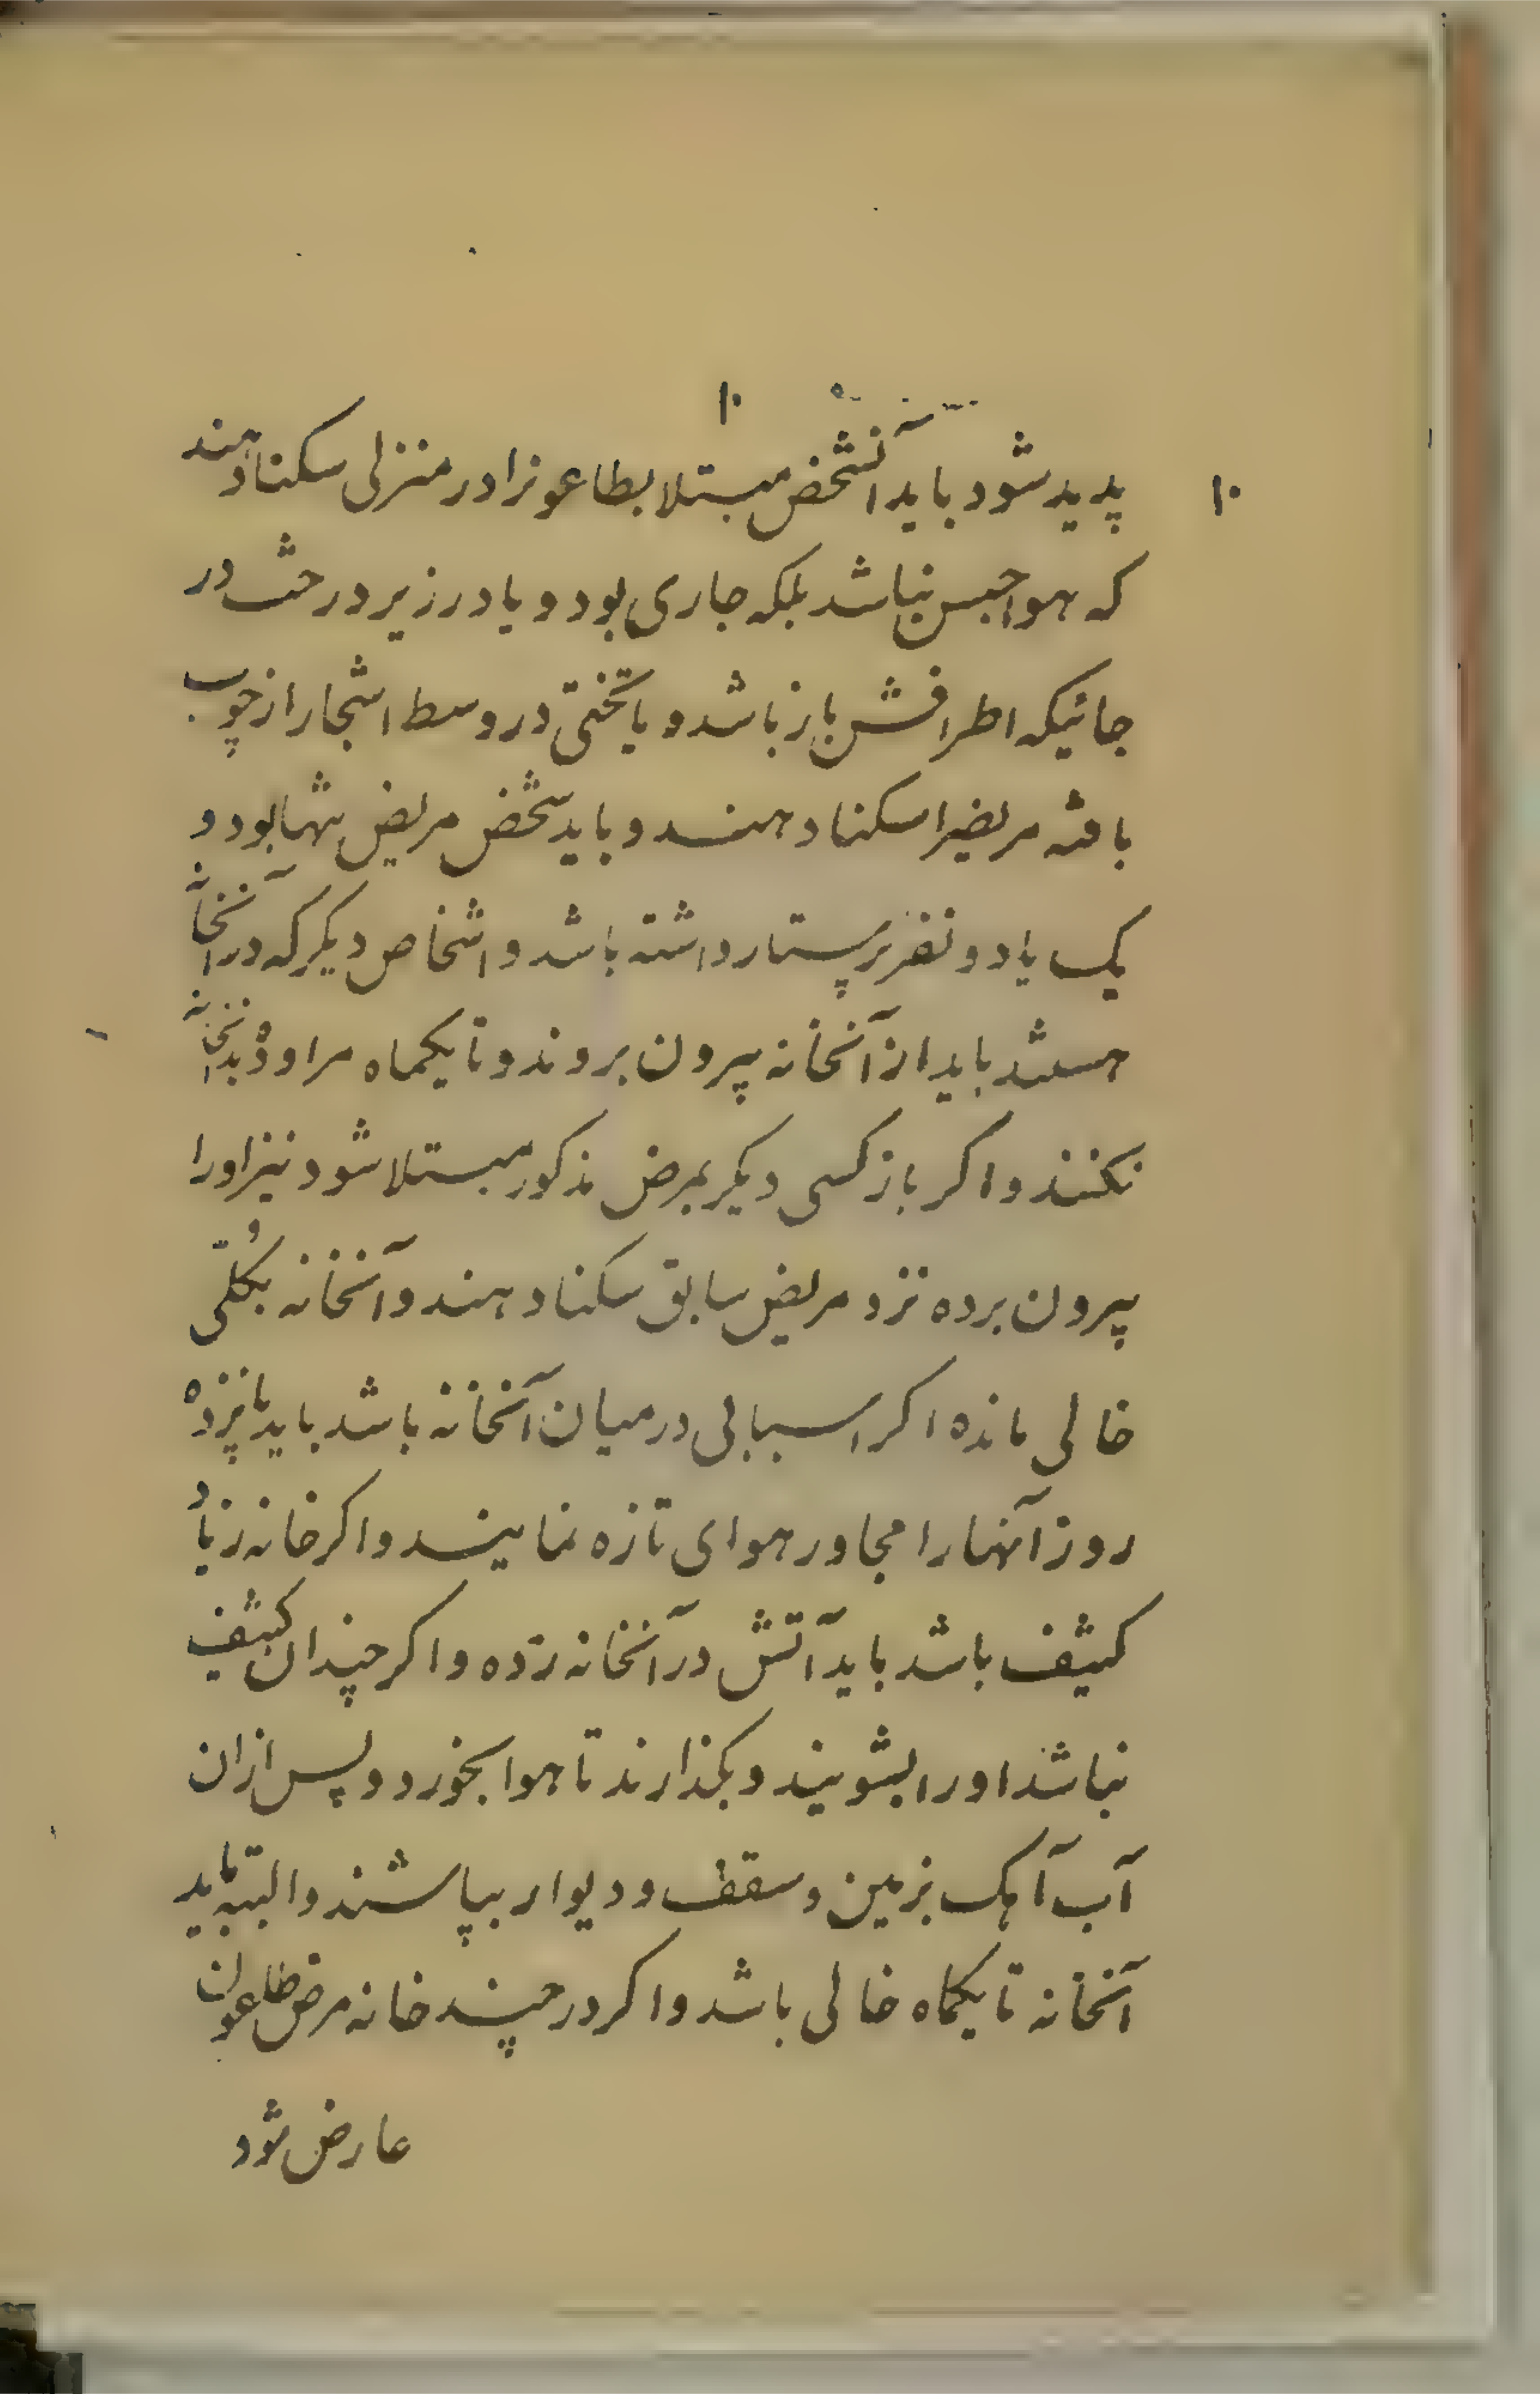 ۱۰
۱۰
پدید شود باید آنشخص مبتلا بطاعونرا در منزلی سکنا دهند
که هوا حبس نباشد بلکه جاری بود و یا در زیر درخت در
جائیکه اطرافش باز باشد و یا تختی در وسط اشجار از چوب
بافته مریضرا سکنا دهند و باید شخص مریض تنها بود و
یک یا دو نفر پرستار داشته باشد و اشخاص دیگر که در آنخانه
هستند باید از آنخانه بیرون بروند و تا یکماه مراوده بدانخانه
نکنند و اکر باز کسی دیکر بمرض مذکور مبتلا شود نیز او را
بیرون برده نزد مریض سابق سکنا دهند و آنخانه بکُلّی
خالی مانده اکر اسبابی در میان آنخانه باشد باید پانزده
روز آنها را مجاور هوای تازه نمایند و اکر خانه زیاد
کثیف باشد باید آتش در آنخانه زده و اکر چندان کثیف
نباشد او را بشویند و بکذارند تا هوا بخورد و پس ازان
آب آهک بزمین و سقف و دیوار بپاشند و البته باید
آنخانه تا یکماه خالی باشد و اکر در چند خانه مرض طاعون
عارض شود